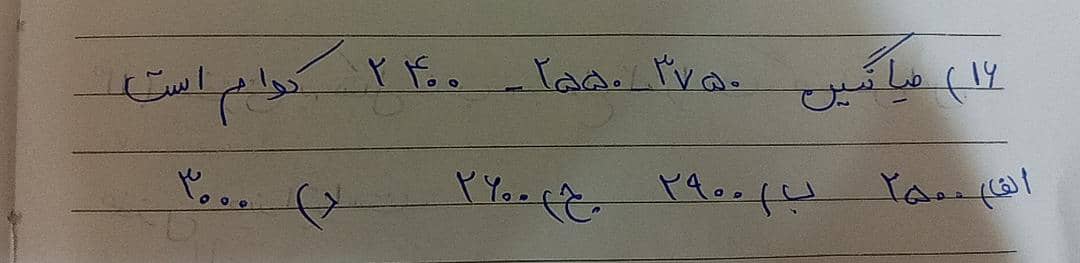 ۱۶) میانگین ۳۷۵۰ - ۲۵۵۰ - ۲۴۰۰ کدام است
الف) ۲۵۰۰ ب) ۲۹۰۰ ج) ۲۶۰۰ د) ۳۰۰۰